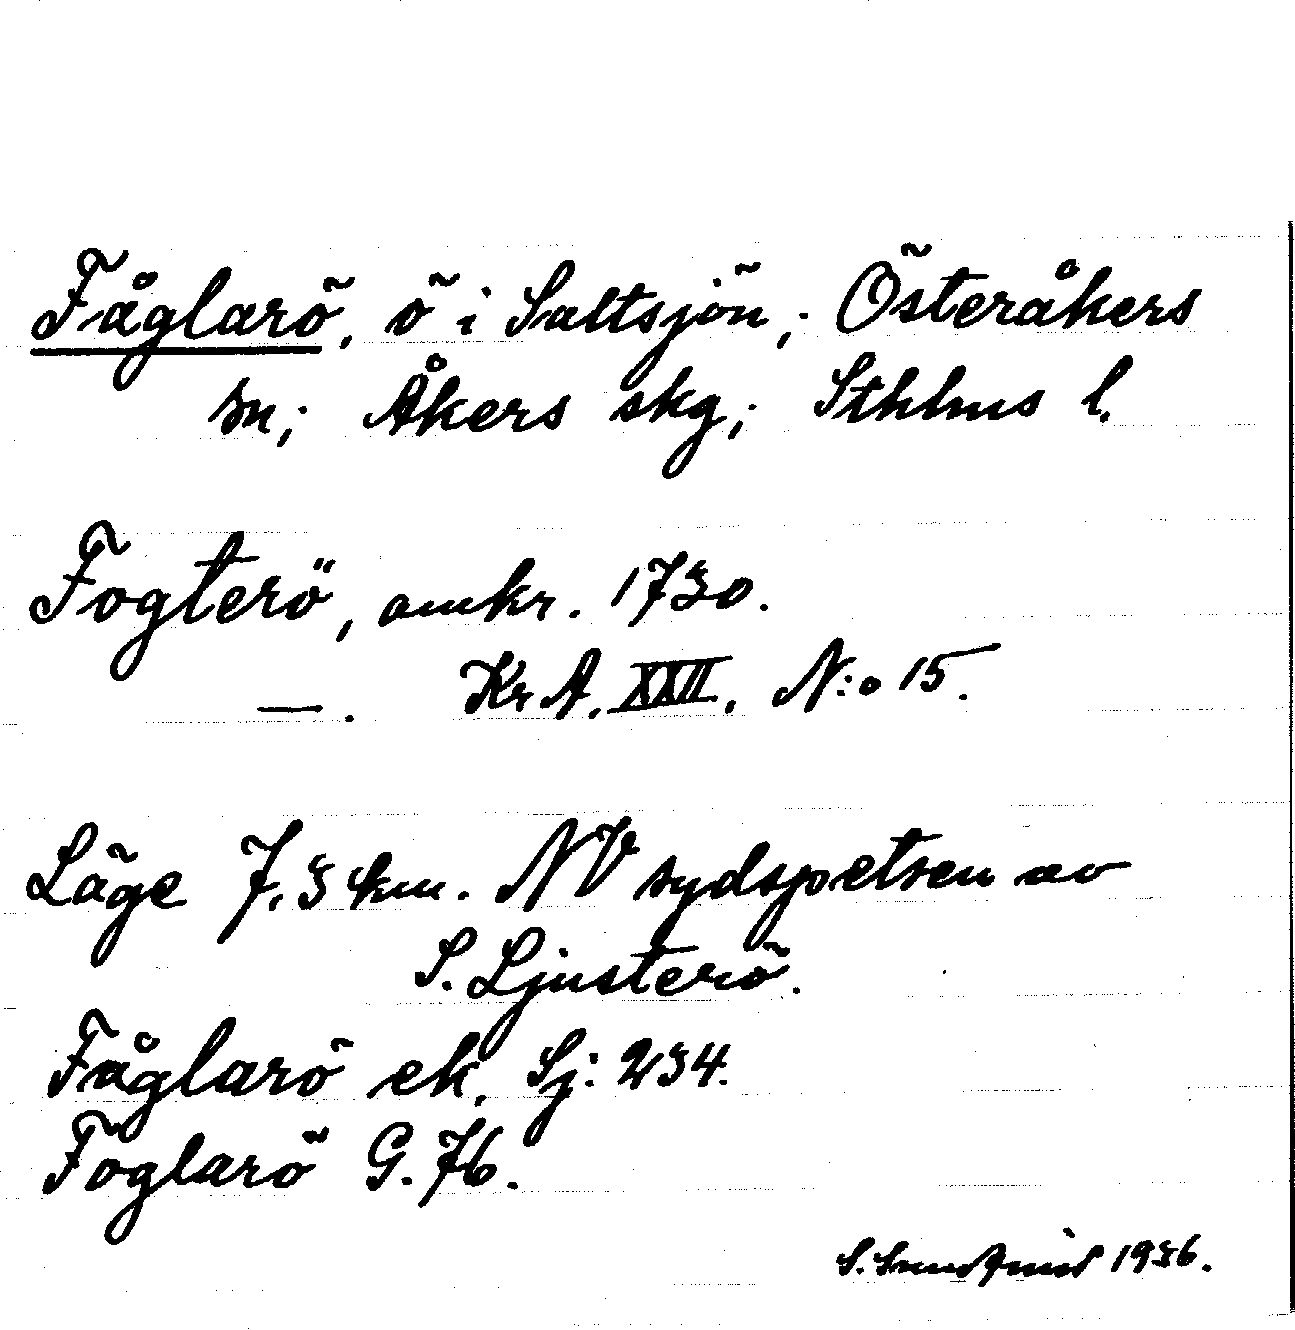 Fåglarö, ö i Saltsjön; Österåkers
sn; Åkers skg; Sthlms l.
Fogterö, omkr. 1730.
—. Kr A. XXII. N:o 15.
Läge 7,3 km. NV sydspetsen av
S. Ljusterö.
Fåglarö ek. Sj: 234.
Foglarö G. 76.
S. 1936.